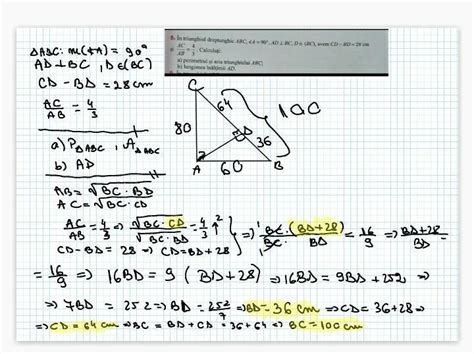 6. În triunghiul dreptunghic ABC, ∢A = 90°, AD ⊥ BC, D ∈ (BC), avem CD − BD = 28 cm
și AC/AB = 4/3. Calculați:
a) perimetrul și aria triunghiului ABC;
b) lungimea înălțimii AD.
ΔABC: m(∢A) = 90°
AD ⊥ BC, D ∈ (BC)
CD − BD = 28 cm
AC/AB = 4/3
a) P ΔABC, A ΔABC
b) AD
C
64
100
80
D
36
A
60
B
AB = √BC · BD
AC = √BC · CD
AC/AB = 4/3 ⇒ √BC · CD / √BC · BD = 4/3 ↑² ⇒ BC · (BD+28) / BC · BD = 16/9 ⇒ BD+28 / BD =
CD − BD = 28 ⇒ CD = BD + 28
= 16/9 ⇒ 16BD = 9 (BD + 28) ⇒ 16BD = 9BD + 252 ⇒
⇒ 7BD = 252 ⇒ BD = 252/7 ⇒ BD = 36 cm ⇒ CD = 36 + 28 ⇒
⇒ CD = 64 cm ⇒ BC = BD + CD = 36 + 64 ⇒ BC = 100 cm